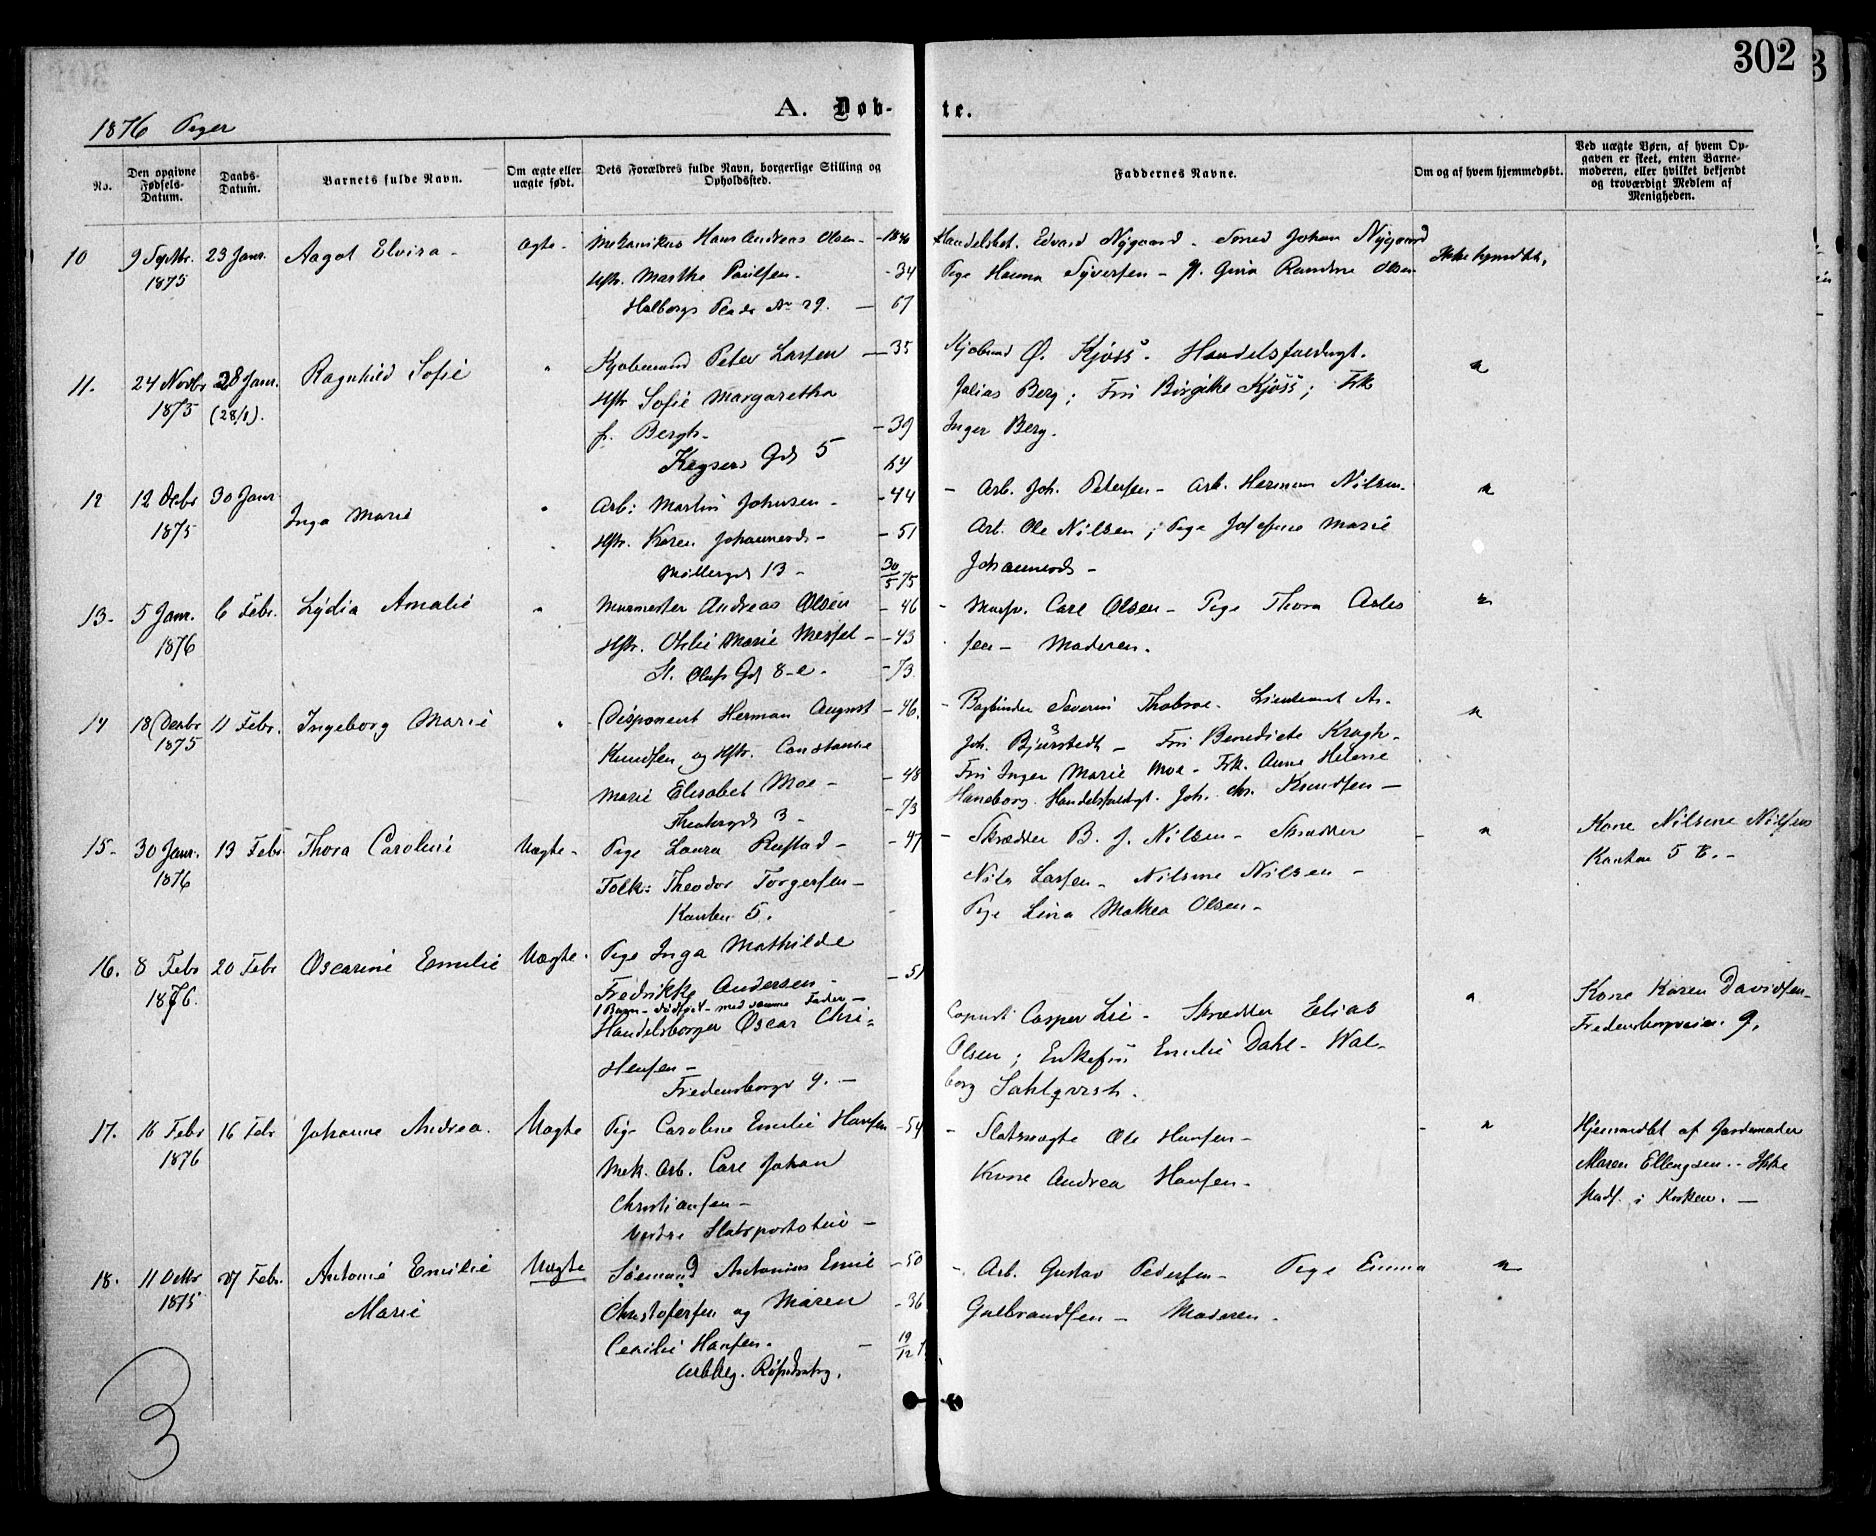 302
A. Døb-
te.
1876 Piger
No.
Den opgivne
Fødsels-
Datum.
Daabs-
Datum.
Barnets fulde Navn.
Om ægte eller
uægte født.
Dets Forældres fulde Navn, borgerlige Stilling og
Opholdssted.
Faddernes Navne.
Om og af hvem hjemmedøbt.
Ved uægte Børn, af hvem Op-
gaven er skeet, enten Barne-
moderen, eller hvilket bekjendt
og troværdigt Medlem af
Menigheden.
10
9 Septbr.
1875
23 Janr.
Aagot Elvira -
Ægte -
Mekanikus Hans Andreas Olsen - 1840
Hstr. Marthe Paulsen. - 34
Halborgs Plads No 29. - 67
Handelsbet. Edvard Nygaard - Smed Johan Nygaard
Pige Hanna Syversen - Gina Randine Olsen
Ikke hjmdbt.
11.
24 Novbr
1875
28 Janr.
(28/1).
Ragnhild Sofie
"
Kjøbmand Peter Larsen - 35
Hstr Sofie Margaretha
f. Bergh - - 39
Keysers Gd 5 64
Kjøbmd Ø. Kjøss. Handelsfuldmgt.
Julius Berg; Fru Birgitte Kjøss; Frk
Inger Berg.
"
12
12 Decbr
1875
30 Janr
Inga Marie
"
Arb: Martin Johnsen - - 44
Hstr. Karen Johannesd - - 51
Møllergd 13 - 30/5 75
- Arb. Joh. Petersen - Arb. Herman Nilsen.
Arb. Ole Nilsen; Pige Josefine Marie
Johannesd -
"
13 -
5 Janr.
1876
6 Febr.
Lydia Amalie
"
Murmester Andreas Olsen - 46
Hstr. Othilie Marie Messel - - 43
St. Olafs Gd 8-e. - 73.
- Carl Olsen - Pige Thora Carls
sen - Moderen.
"
14
18 Decbr
1875
11 Febr.
Ingeborg Marie
"
Disponent Herman August - 46.
Knudsen og Hstr. Constance
Marie Elisabet Moe - - 48
Theatergd 3 - - 73
- Bogbinder Severin - Lieutenant A.
Joh. Bjørstedt - Fru Benedicte Kragh -
Fru Inger Marie Moe - Frk. Anne Helene
Haneborg. Handelsfuldgt. Joh. Chr. Knudsen -
"
15 -
30 Janr.
1876
13 Febr
Thora Caroline
Uægte -
Pige Laura Rustad - - 47
Folk: Theodor Torgersen -
Kanten 5.
- Skrædder B. J. Nilsen - Skrædder
Nils Larsen - Nilsine Nilsen -
Pige Lina Mathea Olsen -
"
Kone Nilsine Nilsen
Kanten 5 B. -
16.
8 Febr
1876.
20 Febr
Oscarine Emilie
Uægte -
Pige Inga Mathilde
Fredrikke Andersen - - 51
1 Barn - dødfødt - med samme Fader -
Handelsborger Oscar Chri=
stensen -
Fredensborgv 9. -
Copist Casper Lie - Skrædder Elias
Olsen; Enkefru Emilie Dahl - Wal-
borg Sahlqvist.
"
Kone Karen Davidsen -
Fredensborgveien 9.
17.
16 Febr
1876
16 Febr.
Johanne Andrea.
Uægte
Pige Caroline Emilie Hansen - 54
Mek. Arb. Carl Johan
Christiansen -
Nedre Slotsportstuie -
- Slotsvagte Ole Hansen -
Kone Andrea Hansen -
"
Hjemmedbt af Jordemoder
Maren Ellengsen - Ikke
stadf. i Kirken. -
18.
11 Octbr
1875
27 Febr.
Antonie Emilie
Marie
Uægte
Sømand Antonius Emil - 50
Christofersen og Maren - 36
Cecilie Hansen. - 19/12
- Arb. Gustav Pedersen - Pige Emma
Gulbrandsen - Moderen.
"
3